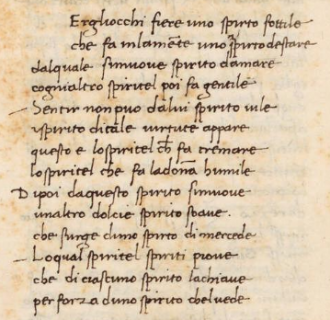 Ergliocchi fiere uno spirto sottile
che fa inlamẽte uno spirto destare
dalquale simuove spirito damare
cogni altro spiritel poi fa gentile
Sentir non puo dalui spirito vile
ispirito ditale virtute appare
questo e lospiritel ch̃ fa tremare
lo spiritel che fa ladonna humile
Dipoi daquesto spirito simuove
unaltro dolcie spirito soave.
che surge duno spirto di mercede
Loqual spiritel spiriti piove
che di ciascuno spirito lachiave
per forza duno spirito chelvede